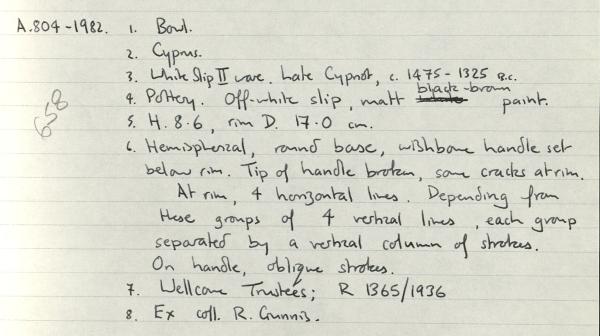 A.804-1982. 1. Bowl.
2. Cyprus.
3. White Slip II ware. Late Cypriot, c. 1475-1325 B.C.
4. Pottery. Off-white slip, matt black-brown paint.
5. H. 8.6, rim D. 17.0 cm.
6. Hemispherical, round base, wishbone handle set
below rim. Tip of handle broken, some cracks at rim.
At rim, 4 horizontal lines. Depending from
these groups of 4 vertical lines, each group
separated by a vertical column of strokes.
On handle, oblique strokes.
7. Wellcome Trustees; R 1365/1936
8. Ex coll. R. Gunnis.